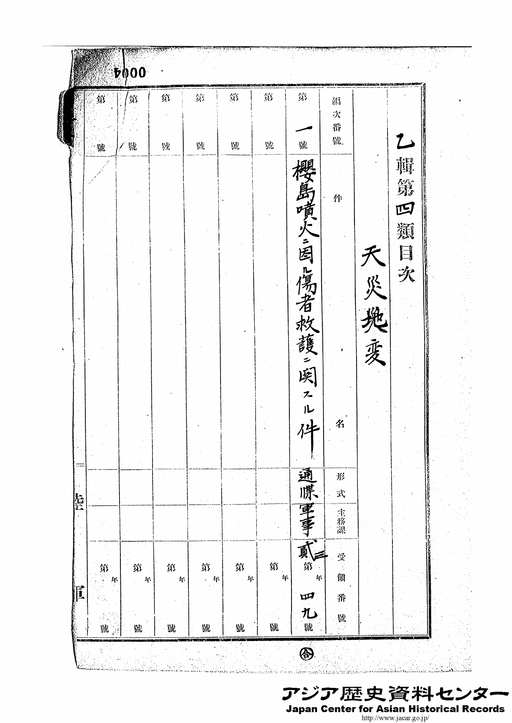 0004
乙輯第四類目次
天災地変
編次番號 件名 形式 主務課 受領番號
第一號 櫻島噴火ニ因ル傷者救護ニ関スル件 通牒 軍事 貳 第四九號
第 號 第 年 號
第 號 第 年 號
第 號 第 年 號
第 號 第 年 號
第 號 第 年 號
第 號 第 年 號
陸軍
アジア歴史資料センター
Japan Center for Asian Historical Records
http://www.jacar.go.jp/